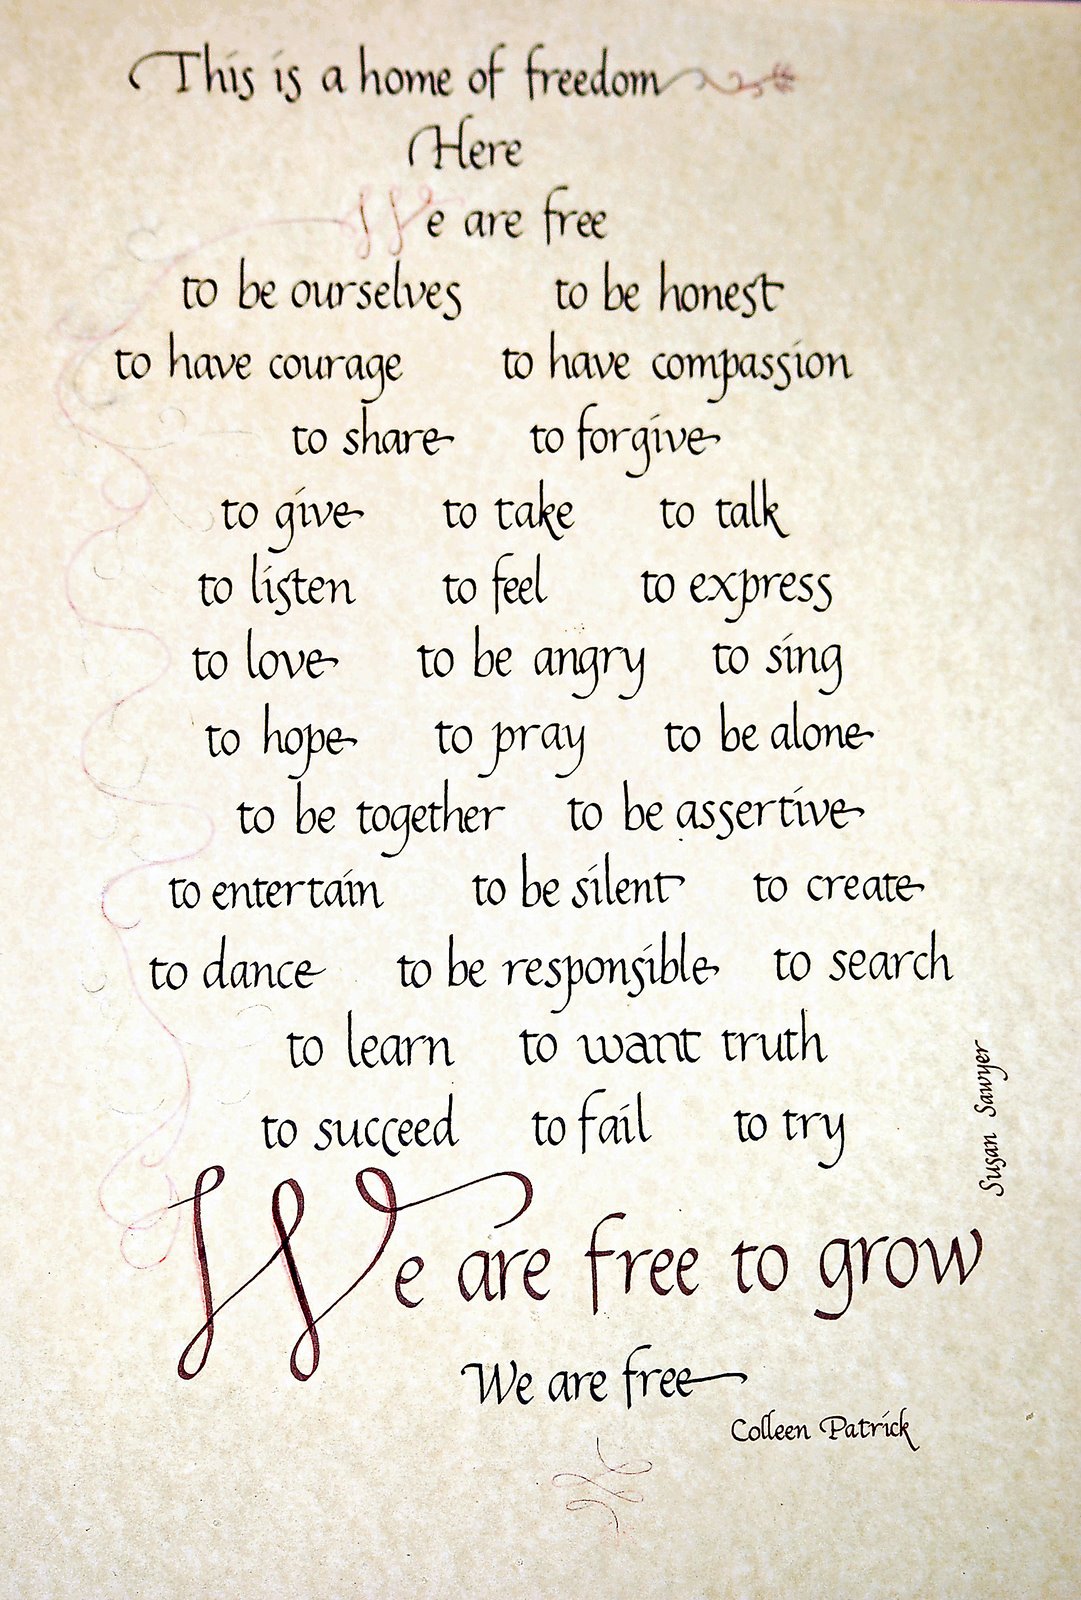 This is a home of freedom
Here
We are free
to be ourselves to be honest
to have courage to have compassion
to share to forgive
to give to take to talk
to listen to feel to express
to love to be angry to sing
to hope to pray to be alone
to be together to be assertive
to entertain to be silent to create
to dance to be responsible to search
to learn to want truth
to succeed to fail to try
We are free to grow
We are free
Colleen Patrick
Susan Sawyer